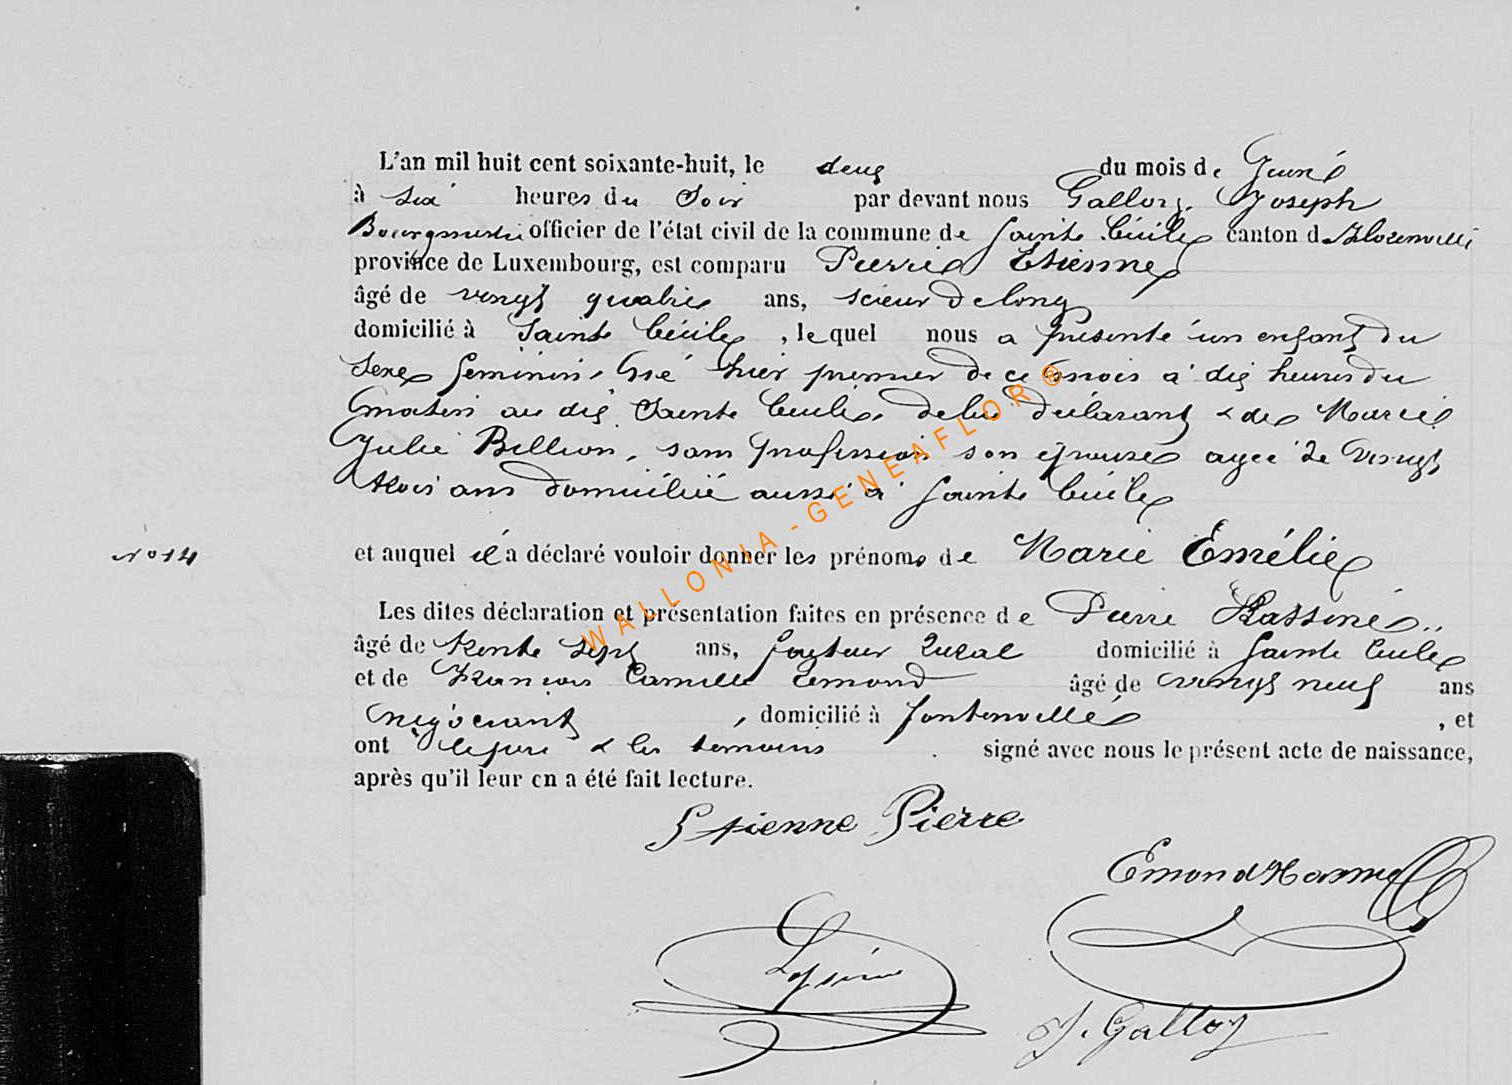 L'an mil huit cent soixante-huit, le deux du mois de Juin
à six heures du Soir par devant nous Galloy Joseph
Bourgmestre officier de l'état civil de la commune de Sainte Cécile canton de Florenville
province de Luxembourg, est comparu Pierre Etienne
âgé de vingt quatre ans, scieur de long
domicilié à Sainte Cécile, lequel nous a présenté un enfant du
sexe feminin, né hier premier de ce mois à dix heures du
matin au dit Sainte Cécile, de lui déclarant & de Marie
Julie Billion, sans profession son épouse agée de vingt
trois ans domiciliée aussi à Sainte Cécile
N° 14 et auquel il a déclaré vouloir donner les prénoms de Marie Emélie
Les dites déclaration et présentation faites en présence de Pierre
âgé de trente sept ans, facteur rural domicilié à Sainte Cécile
et de François Camille Emond âgé de vingt neuf ans
négociant, domicilié à Fontenoille, et
ont le père & les temoins signé avec nous le présent acte de naissance,
après qu'il leur en a été fait lecture.
Etienne Pierre
Emond
J. Galloy
WALLONIA - GENEAFLOR ©